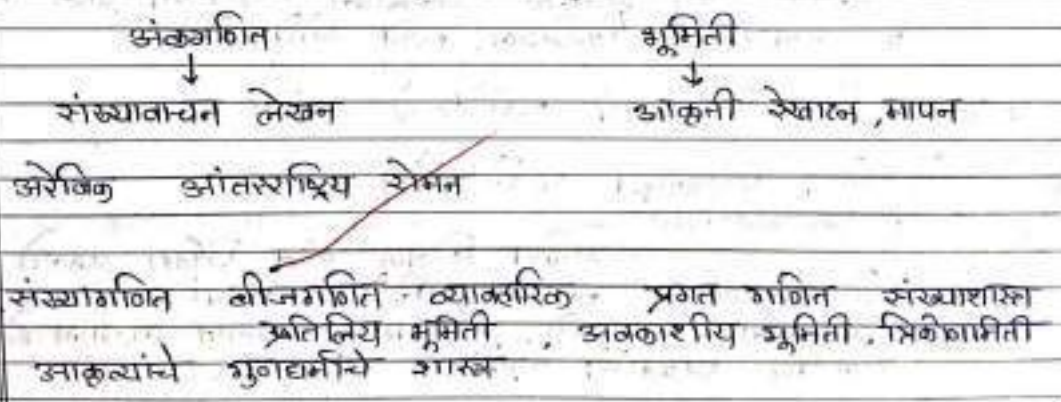 अंकगणित भूमिती
↓ ↓
संख्यावाचन लेखन आकृती रेखाटन, मापन
अरेबिक आंतरराष्ट्रिय रोमन
संख्यागणित बीजगणित व्यावहारिक प्रगत गणित संख्याशास्त्र
प्रतलिय भूमिती, अवकाशीय भूमिती, त्रिकोणमिती
आकृत्यांचे गुणधर्मांचे शास्त्र.